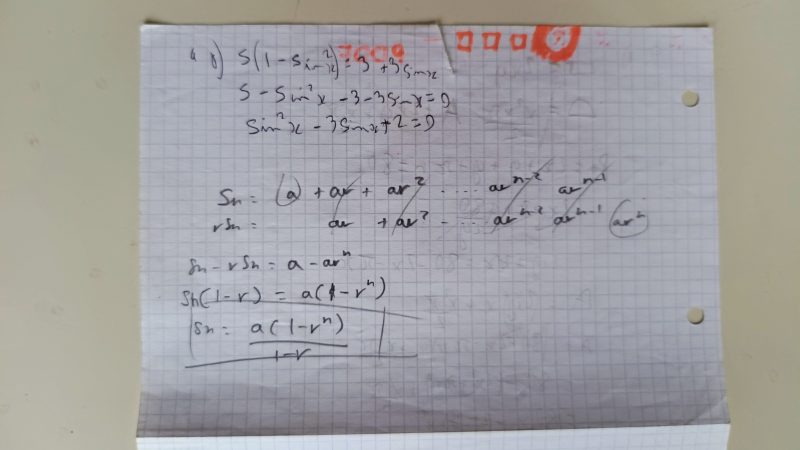 b) 5(1 - Sin²x) = 3 + 3 Sinx
5 - Sin²x - 3 - 3 Sinx = 0
Sin²x - 3 Sinx + 2 = 0
Sn = a + ar + ar² ..... ar^n-2 ar^n-1
rSn = ar + ar² - ..... ar^n-2 ar^n-1 ar^n
Sn - rSn = a - ar^n
Sn(1-r) = a(1-r^n)
Sn = a(1-r^n)
1-r